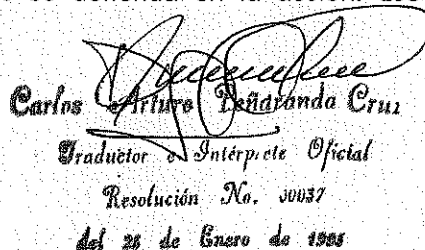 Carlos Arturo Peñaranda Cruz
Traductor e Intérprete Oficial
Resolución No. 00037
del 26 de Enero de 1995